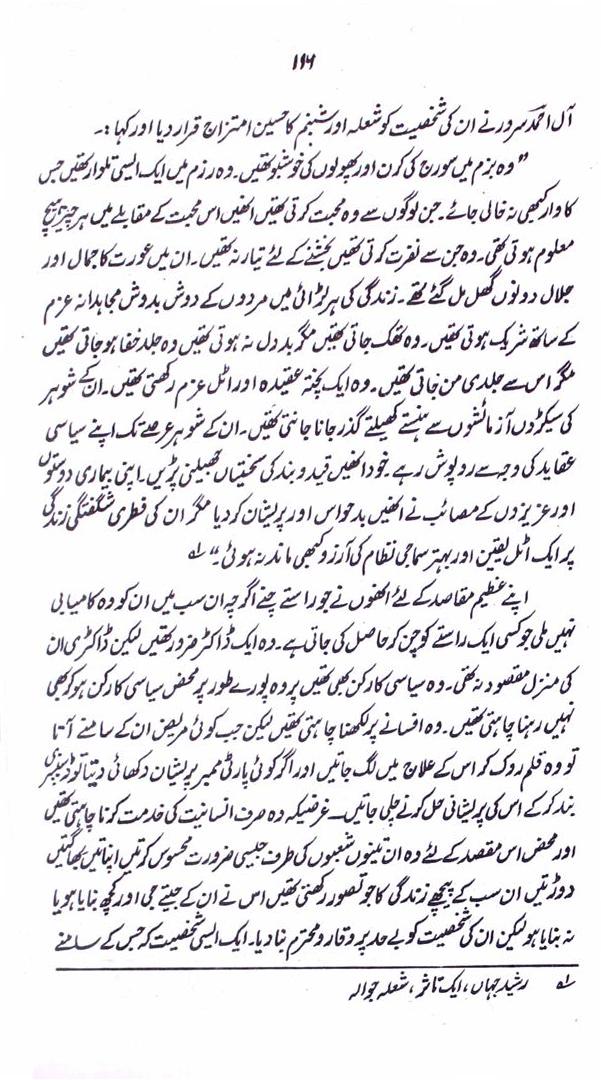 ۱۹۶
آل احمد سرور نے ان کی شخصیت کو شعلہ اور شبنم کا حسین امتزاج قرار دیا اور کہا:۔
”وہ بزم میں سورج کی کرن اور پھولوں کی خوشبو تھیں۔ وہ رزم میں ایک ایسی تلوار تھیں جس
کا وار کبھی نہ خالی جائے۔ جن لوگوں سے وہ محبت کرتی تھیں انھیں اس محبت کے مقابلے میں ہر چیز ہیچ
معلوم ہوتی تھی۔ وہ جن سے نفرت کرتی تھیں بخشنے کے لئے تیار نہ تھیں۔ ان میں عورت کا جمال اور
جلال دونوں گھل مل گئے تھے۔ زندگی کی ہر لڑائی میں مردوں کے دوش بدوش مجاہدانہ عزم
کے ساتھ شریک ہوتی تھیں۔ وہ تھک جاتی تھیں مگر بد دل نہ ہوتی تھیں وہ جلد خفا ہو جاتی تھیں
مگر اس سے جلدی من جاتی تھیں۔ وہ ایک پختہ عقیدہ اور اٹل عزم رکھتی تھیں۔ ان کے شوہر
کی سیکڑوں آزمائشوں سے ہنستے کھیلتے گذر جانا جانتی تھیں۔ ان کے شوہر عرصے تک اپنے سیاسی
عقاید کی وجہ سے روپوش رہے۔ خود انھیں قید و بند کی سختیاں جھیلنی پڑیں۔ اپنی بیماری دوستوں
اور عزیزوں کے مصائب نے انھیں بدحواس اور پریشان کر دیا مگر ان کی فطری شگفتگی زندگی
پر ایک اٹل یقین اور بہتر سماجی نظام کی آرزو کبھی ماند نہ ہوئی۔“ ؂۱
اپنے عظیم مقاصد کے لئے انھوں نے جو راستے چنے اگرچہ ان سب میں ان کو وہ کامیابی
نہیں ملی جو کسی ایک راستے کو چن کر حاصل کی جاتی ہے۔ وہ ایک ڈاکٹر ضرور تھیں لیکن ڈاکٹری ان
کی منزل مقصود نہ تھی۔ وہ سیاسی کارکن بھی تھیں پر وہ پورے طور پر محض سیاسی کارکن ہو کر بھی
نہیں رہنا چاہتی تھیں۔ وہ افسانے پر لکھنا چاہتی تھیں لیکن جب کوئی مریض ان کے سامنے آتا
تو وہ قلم روک کر اس کے علاج میں لگ جاتیں اور اگر کوئی پارٹی ممبر پریشان دکھائی دیتا تو ڈسپنسری
بند کر کے اس کی پریشانی حل کرنے چلی جاتیں۔ غرضیکہ وہ صرف انسانیت کی خدمت کرنا چاہتی تھیں
اور محض اس مقصد کے لئے وہ ان تینوں شعبوں کی طرف جیسی ضرورت محسوس کرتیں اپناتیں بھاگتیں
دوڑتیں ان سب کے پیچھے زندگی کا جو تصور رکھتی تھیں اس نے ان کے جیتے جی اور کچھ بنایا ہو یا
نہ بنایا ہو لیکن ان کی شخصیت کو بے حد پر وقار و محترم بنا دیا۔ ایک ایسی شخصیت کہ جس کے سامنے
؂۱ رشید جہاں، ایک تاثر، شعلہ جوالہ